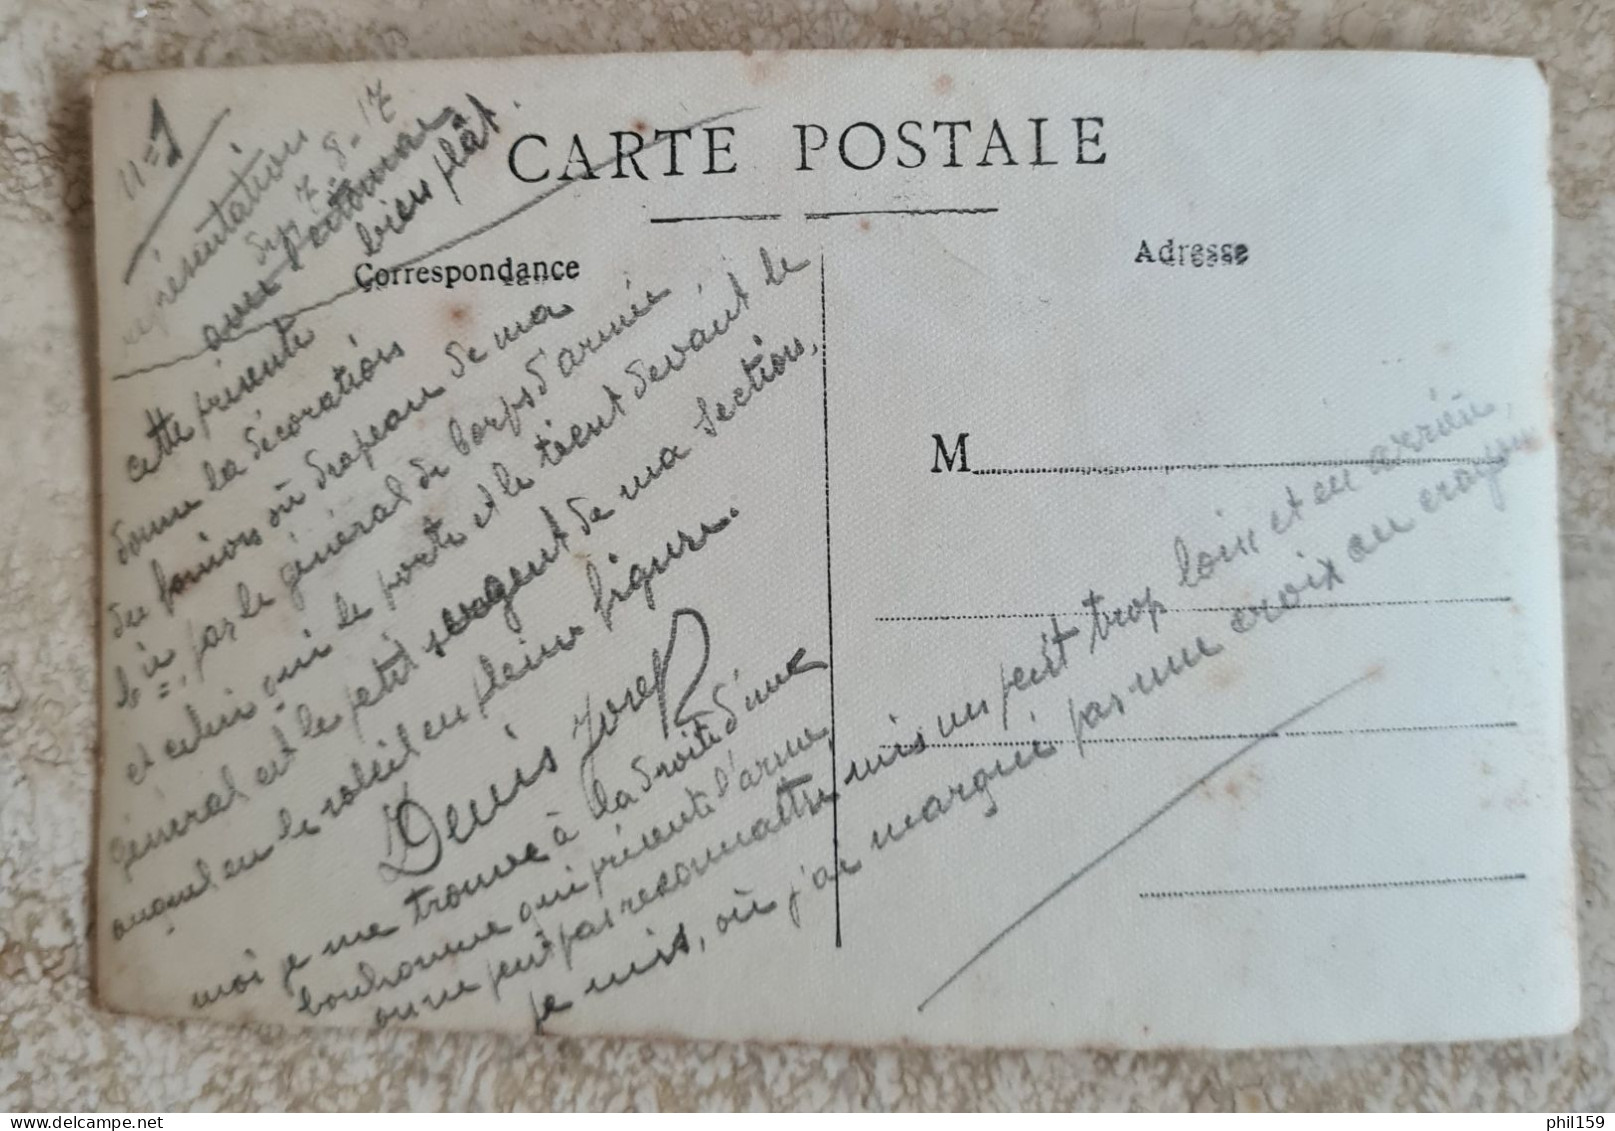 n=1
7-8-17
représentation
avec
bien plât.
CARTE POSTALE
Correspondance
Adresse
M
cette présente
donne la décorations
du fanion où drapeau de ma
par le général de Corps d'armée
et celui qui le porte et le tient devant le
général est le petit sergent de ma section,
auquel en le soleil en pleine figure.
Denis Josep
moi je me trouve à la droite d'une
bonhomme qui présente l'arme,
on ne peut pas reconnaittre, mis un peut trop loin et en arrière,
je mis, où j'ai marqué par une croix au crayon
phil159